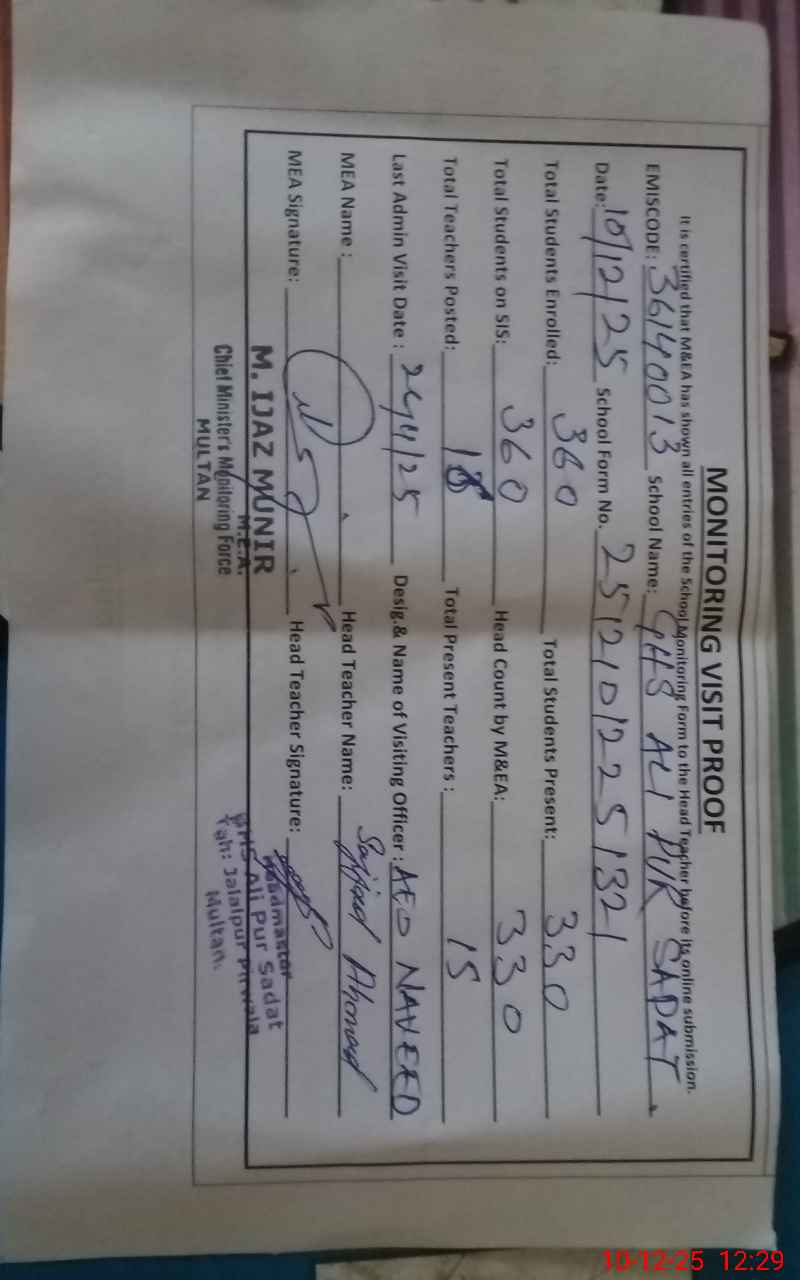 MONITORING VISIT PROOF
It is certified that M&EA has shown all entries of the School Monitoring Form to the Head Teacher before its online submission.
EMISCODE: 36140013 School Name: GHS ALI PUR SADAT.
Date: 10/12/25 School Form No. 25121012251321
Total Students Enrolled: 360 Total Students Present: 330
Total Students on SIS: 360 Head Count by M&EA: 330
Total Teachers Posted: 18 Total Present Teachers : 15
Last Admin Visit Date : Desig.& Name of Visiting Officer : AEO NAVEED
MEA Name : Head Teacher Name: Sajjad Ahmad
MEA Signature: Head Teacher Signature:
M. IJAZ MUNIR
M.E.A.
Chief Minister's Monitoring Force
MULTAN
Headmaster
GHS Ali Pur Sadat
Teh: Jalalpur Pirwala
Multan.
10-12-25 12:29